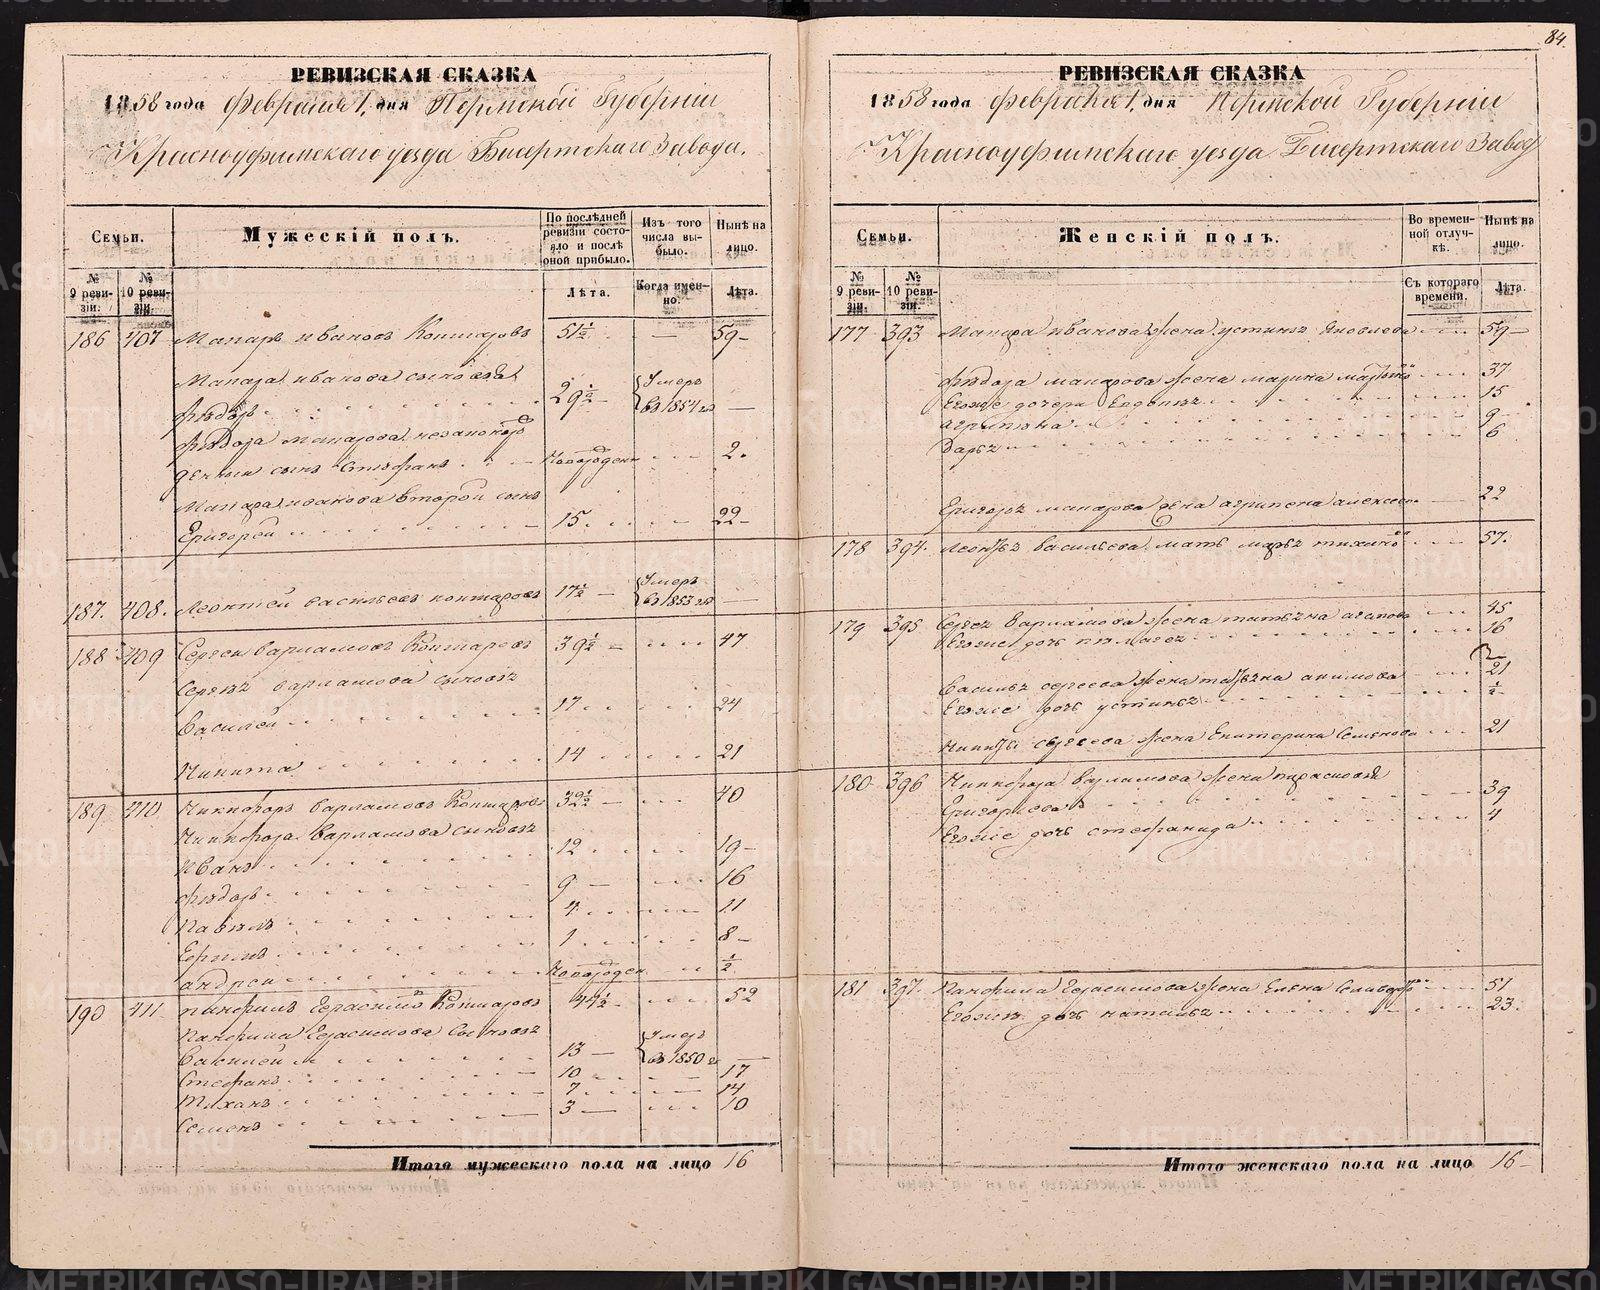 84.
РЕВИЗСКАЯ СКАЗКА
1858 года Февраля 1, дня Пермской Губерніи
Красноуфимскаго уезда Бисертскаго Завода.
Семьи.
Мужескій полъ.
По послѣдней ревизіи состояло и послѣ оной прибыло.
Изъ того числа выбыло.
Нынѣ на лицо.
№ 9 ревизіи.
№ 10 ревизіи.
Лѣта.
Когда именно.
Лѣта.
186 407 Макаръ Ивановъ 51½ — 59
Макара Иванова сыновья
Фѣдоръ 29½ Умеръ въ 1854 —
Фѣдора Макарова
сынъ Стефанъ Новорожден 2.
Макара Иванова второй сынъ
Григорей 15 22
187. 408. Леонтей Васильевъ 17½ Умеръ въ 1853 —
188 409 Сергей Варламовъ 39½ 47
Сергѣя Варламова сыновья
Василей 17 24
Никита 14 21
189 410 Никифоръ Варламовъ 32½ 40
Никифора Варламова сыновья
Иванъ 12 19
Фѣдоръ 9 16
Павелъ 4 11
Ефимъ 1 8
Андрей Новорожден ½
190 411 Панфилъ Герасимовъ 44½ 52
Панфила Герасимова сыновья
Василей 13 Умеръ въ 1850 —
Стефанъ 10 17
7 14
Семенъ 3 10
Итого мужескаго пола на лицо 16
РЕВИЗСКАЯ СКАЗКА
1858 года Февраля 1, дня Пермской Губерніи
Красноуфимскаго уезда Бисертскаго Завода
Семьи.
Женскій полъ.
Во временной отлучкѣ.
Нынѣ на лицо.
№ 9 ревизіи.
№ 10 ревизіи.
Съ котораго времени.
Лѣта.
177 393 Макара Иванова жена Устинья Яковлева 59
Фѣдора Макарова жена Марина 37
Егоже дочери Евдокія 15
Агрипѣна 9
Дарья 6
Григорья Макарова жена Агрипена Алексеева 22
178 394. Леонтья Васильева мать Марья 57.
179 395 Сергея Варламова жена Татьяна 45
Егоже дочь Пелагея 16
Василья Сергеева жена Татьяна Акимова 21
Егоже дочь Устинья ½
Никиты Сергеева жена Екатерина Семенова 21
180 396 Никифора Варламова жена Парасковья
Григорьева 39
Егоже дочь Стефанида 4
181 397. Панфила Герасимова жена Елена 51
Егоже дочь Наталья 23.
Итого женскаго пола на лицо 16
METRIKI.GASO-URAL.RU